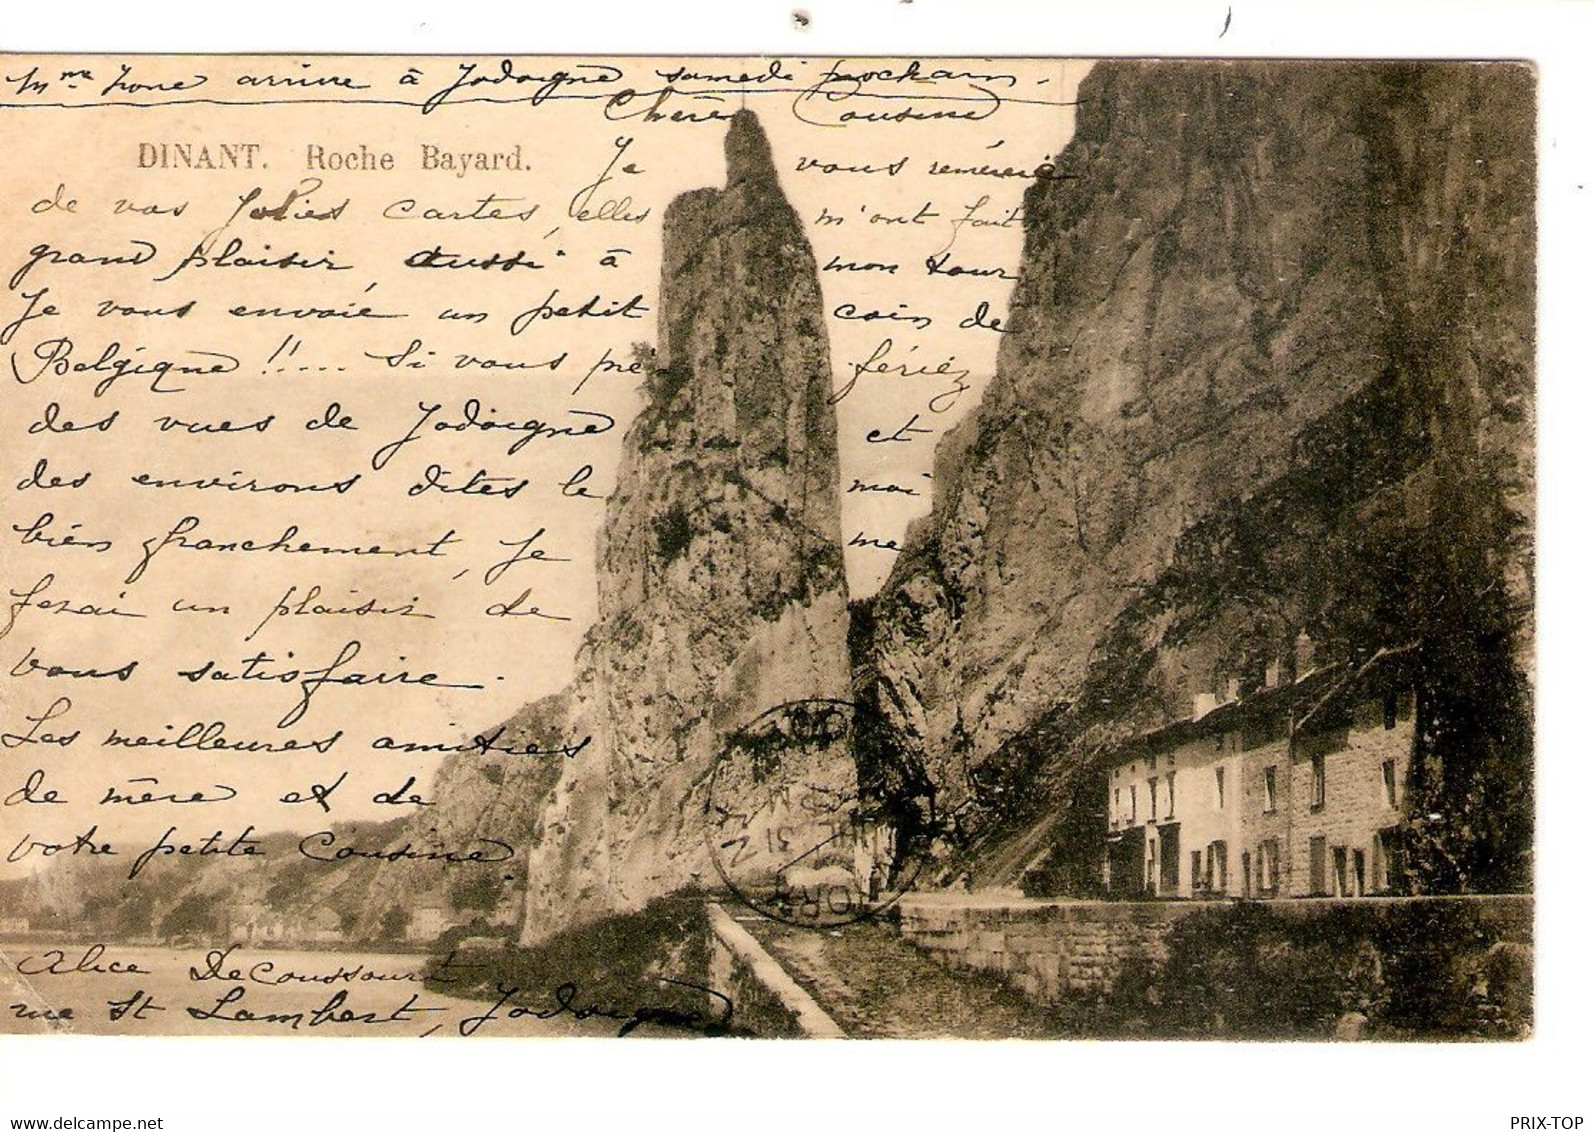 Mme Irone arrive à Jodoigne samedi prochain.
Chère Cousine
DINANT. Roche Bayard.
Je vous remércie
de vos jolies cartes, elles m'ont fait
grand plaisir, aussi à mon tour
Je vous envoié un petit coin de
Belgique !!.... Si vous pré- fériéz
des vues de Jodoigne et
des environs dites le moi
bién franchement, Je me
ferai un plaisir de
vous satisfaire.
Les meilleures amitiés
de mère et de
votre petite Cousine.
Alice Decoussourt
rue St Lambert, Jodoigne
www.delcampe.net
PRIX-TOP